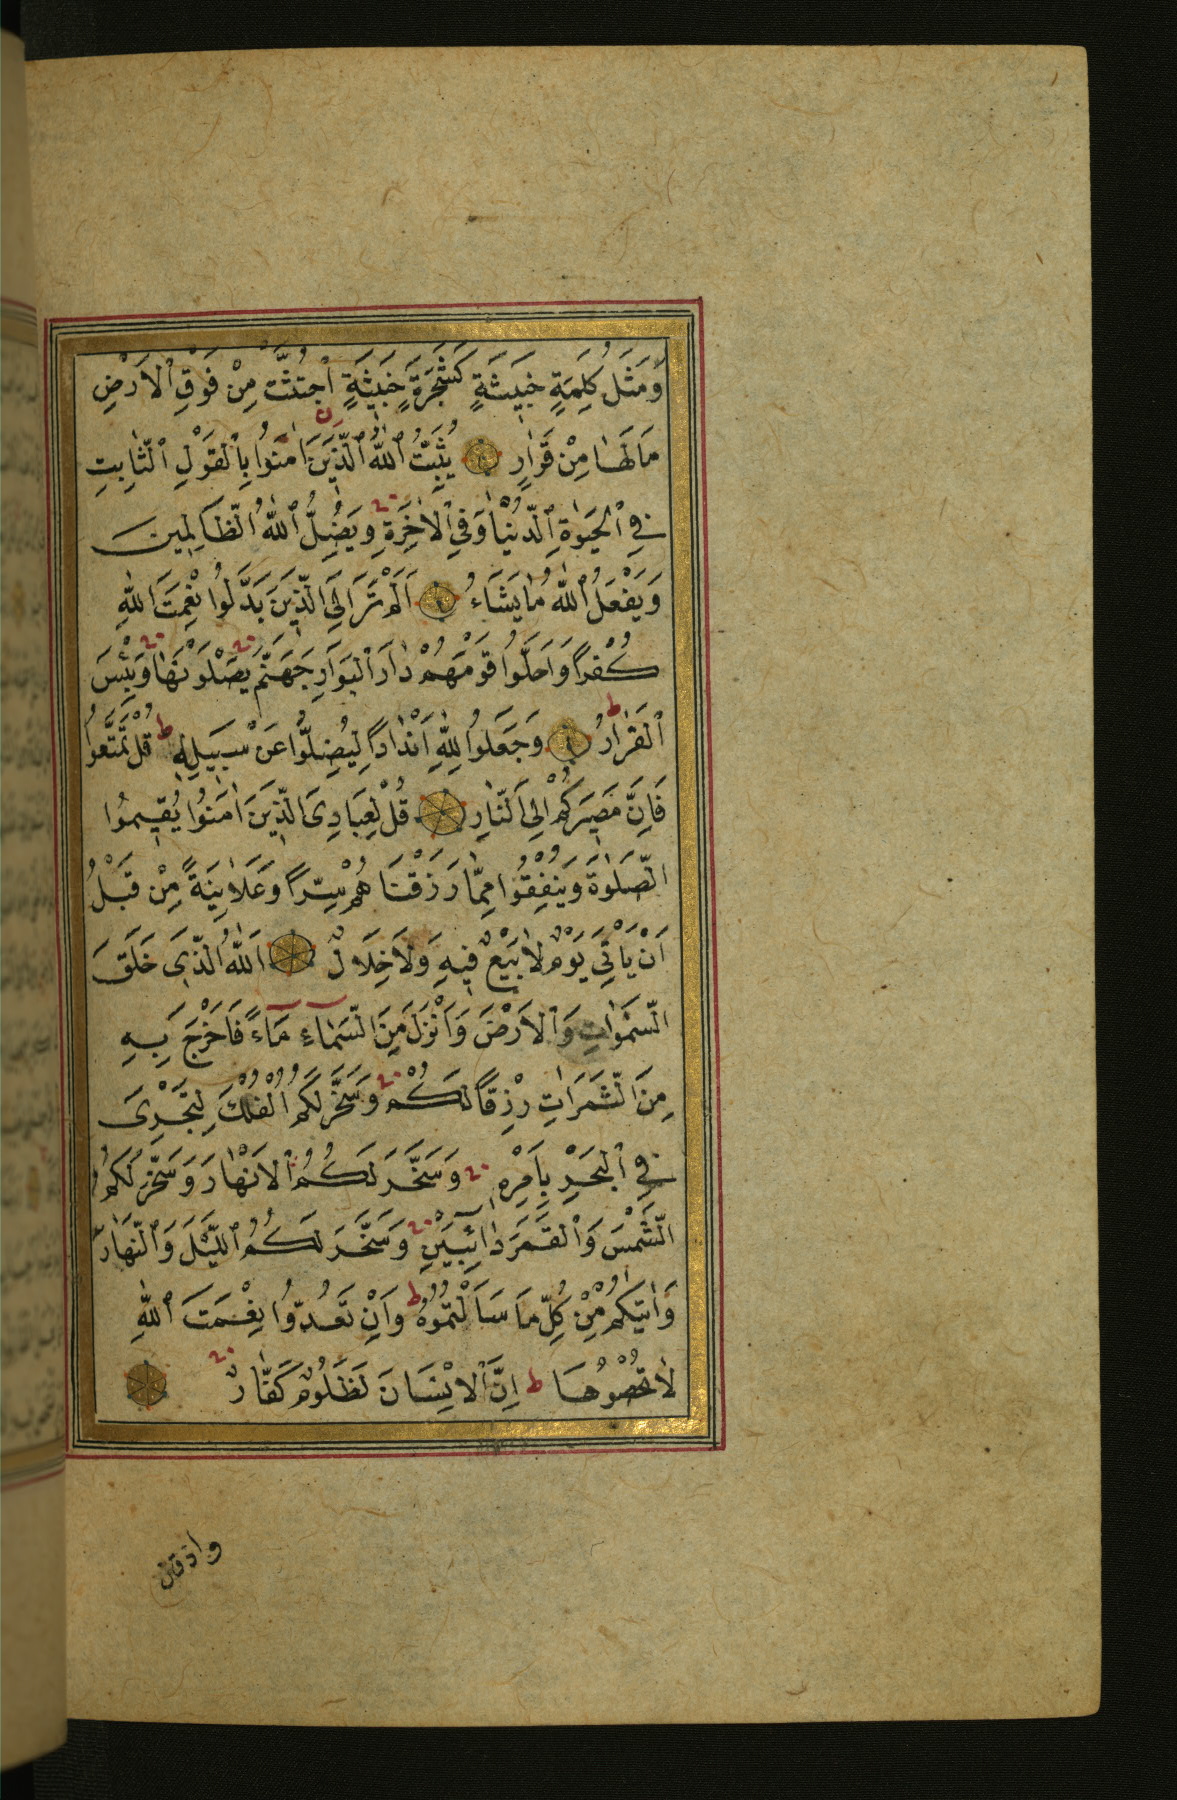 وَمَثَلُ كَلِمَةٍ خَبِيثَةٍ كَشَجَرَةٍ خَبِيثَةٍ ٱجْتُثَّتْ مِنْ فَوْقِ ٱلْاَرْضِ
مَالَهَا مِنْ قَرَارٍ يُثَبِّتُ ٱللّٰهُ ٱلَّذِينَ اٰمَنُوا بِٱلْقَوْلِ ٱلثَّابِتِ
فِي ٱلْحَيٰوةِ ٱلدُّنْيَا وَفِي ٱلْاٰخِرَةِ وَيُضِلُّ ٱللّٰهُ ٱلظَّالِمِينَ
وَيَفْعَلُ ٱللّٰهُ مَا يَشَاءُ اَلَمْ تَرَ اِلَى الَّذِينَ بَدَّلُوا نِعْمَتَ اللّٰهِ
كُفْرًا وَاَحَلُّوا قَوْمَهُمْ دَارَ ٱلْبَوَارِ جَهَنَّمَ يَصْلَوْنَهَا وَبِئْسَ
ٱلْقَرَارُ ط وَجَعَلُوا لِلّٰهِ اَنْدَادًا لِيُضِلُّوا عَنْ سَبِيلِهِ ط قُلْ تَمَتَّعُوا
فَاِنَّ مَصِيرَكُمْ اِلَى ٱلنَّارِ قُلْ لِعِبَادِىَ الَّذِينَ اٰمَنُوا يُقِيمُوا
الصَّلٰوةَ وَيُنْفِقُوا مِمَّا رَزَقْنَاهُمْ سِرًّا وَعَلَانِيَةً مِنْ قَبْلِ
اَنْ يَاْتِيَ يَوْمٌ لَا بَيْعٌ فِيهِ وَلَا خِلَالٌ اَللّٰهُ الَّذِي خَلَقَ
السَّمٰوَاتِ وَٱلْاَرْضَ وَاَنْزَلَ مِنَ السَّمَاءِ مَاءً فَاَخْرَجَ بِهِ
مِنَ الثَّمَرَاتِ رِزْقًا لَكُمْ وَسَخَّرَ لَكُمُ الْفُلْكَ لِتَجْرِىَ
فِي ٱلْبَحْرِ بِاَمْرِهِ وَسَخَّرَ لَكُمُ ٱلْاَنْهَارَ وَسَخَّرَ لَكُمُ
الشَّمْسَ وَٱلْقَمَرَ دَائِبَيْنِ وَسَخَّرَ لَكُمُ ٱللَّيْلَ وَٱلنَّهَارَ
وَاٰتٰيكُمْ مِنْ كُلِّ مَا سَاَلْتُمُوهُ ط وَاِنْ تَعُدُّوا نِعْمَتَ ٱللّٰهِ
لَا تُحْصُوهَا ط اِنَّ ٱلْاِنْسَانَ لَظَلُومٌ كَفَّارٌ
واذ قال